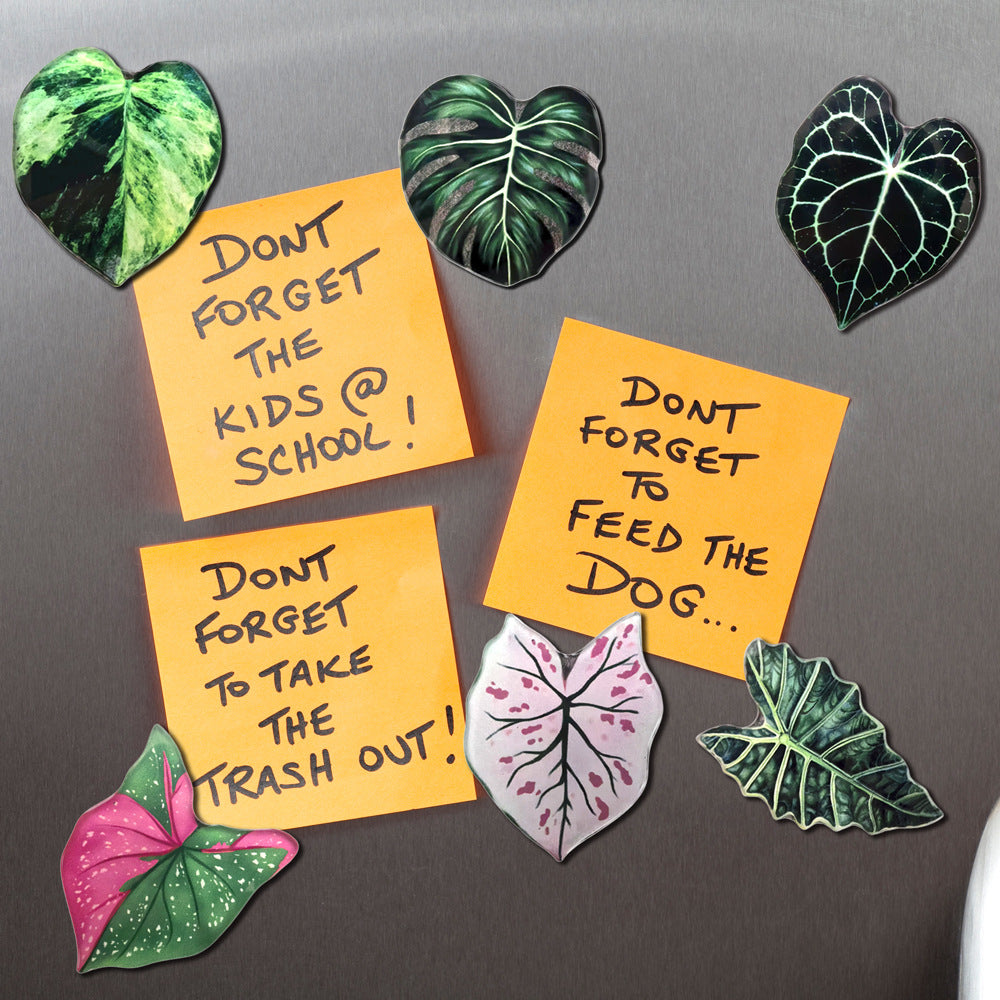 DONT
FORGET
THE
KIDS @
SCHOOL!
DONT
FORGET
TO
FEED THE
DOG...
DONT
FORGET
TO TAKE
THE
TRASH OUT!